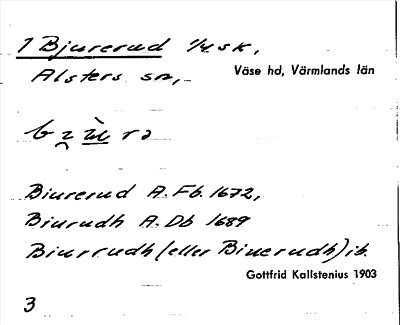 1 Bjurerud 1/4 sk,
Alsters sn,
Väse hd, Värmlands län
Biurerud A.Fb. 1672,
Biurudh A.Db 1689
Biurrudh (eller Biuerudh) ib.
Gottfrid Kallstenius 1903
3